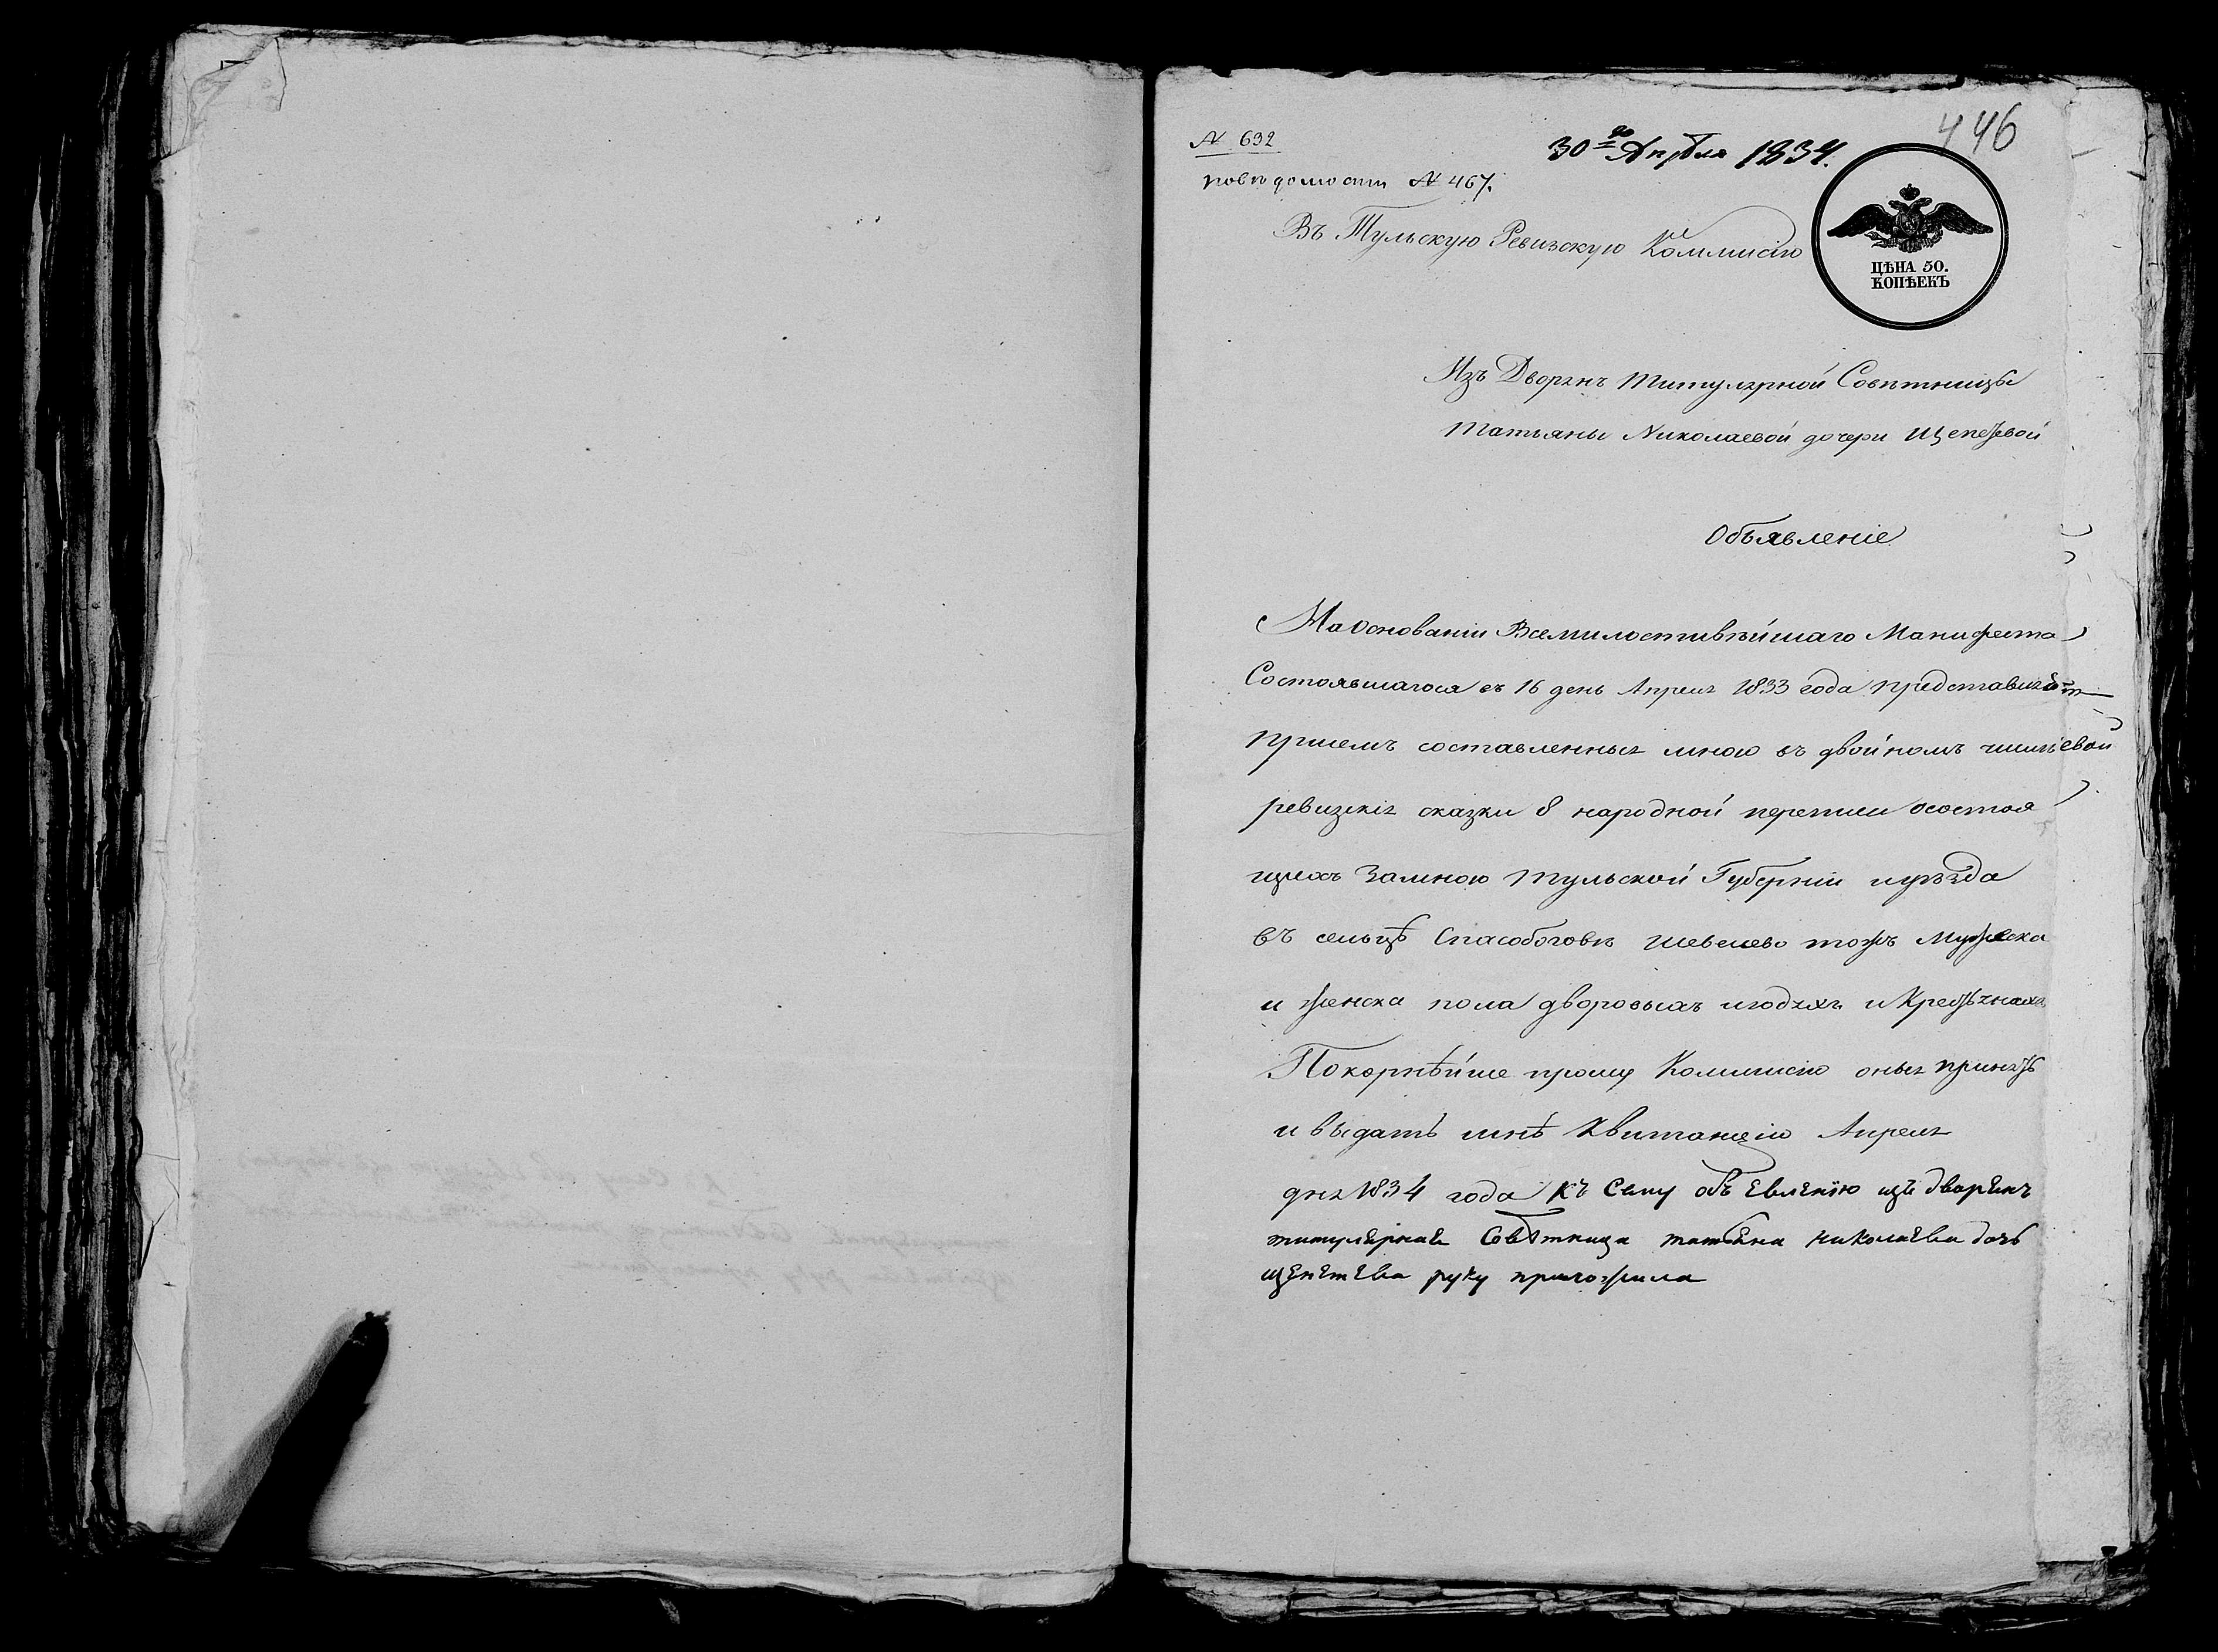 446
№ 632
30го Апреля 1834.
поведомости № 467.
Въ Тульскую Ревизскую Коммисію
ЦѢНА 50.
КОПѢЕКЪ
Изъ Дворянъ Титулярной Совѣтницы
Татьяны Николаевой дочери Щепетевой
Объявленіе
На основаніи Всемилостивѣйшаго Манифеста
Состоявшагося въ 16 день Апреля 1833 года представляя
при семъ составленныя мною въ двойномъ числѣ
ревизскія сказки 8 народной переписи осостоя
щихъ Замною Тульской Губерніи иуѣзда
въ сельцѣ тожъ Мужеска
и женска пола дворовыхъ людяхъ и Крестьянахъ
Покорнѣйше прошу Коммисію оныя принять
и выдать мнѣ Квитанцію Апреля
дня 1834 года Къ Сему объ Евленїю изъ дворѣнъ
титулѣрнаѣ Совѣтница татьѣна николаѣва дочь
щепѣтѣва руку приложила